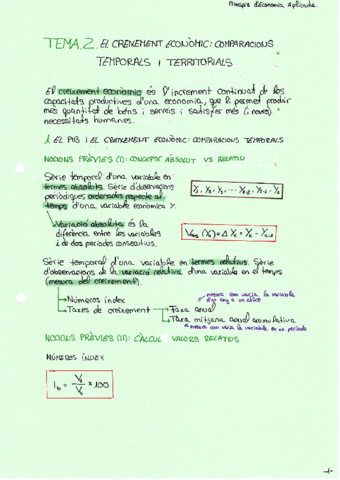 Principis d'Economia Aplicada.
TEMA.2. EL CREIXEMENT ECONÒMIC: COMPARACIONS
TEMPORALS I TERRITORIALS
El creixement econòmic és l'increment continuat de les
capacitats productives d'una economia, que li permet produir
més quantitat de béns i serveis i satisfer més (i noves)
necessitats humanes.
1. EL PIB I EL CREIXEMENT ECONÒMIC: COMPARACIONS TEMPORALS
NOCIONS PRÈVIES (I): CONCEPTE ABSOLUT VS RELATIU
Sèrie temporal d'una variable en
termes absoluts. Sèrie d'observacions
periòdiques ordenades respecte al
temps d'una variable econòmica Y.
Y₁, Y₂, Y₃, ... Yₜ₋₂, Yₜ₋₁, Yₜ
Variació absoluta: és la
diferència entre les variables
i de dos períodes consecutius.
Sèrie temporal d'una variable en termes relatius. Sèrie
d'observacions de la variació relativa d'una variable en el temps
(mesura del creixement).
Números índex
Taxes de creixement
Taxa anual
mesura com varia la variable
Taxa mitjana anual acumulativa
mesura com varia la variable en un període
NOCIONS PRÈVIES (II): CÀLCUL VALORS RELATIUS
NÚMEROS ÍNDEX
-1-